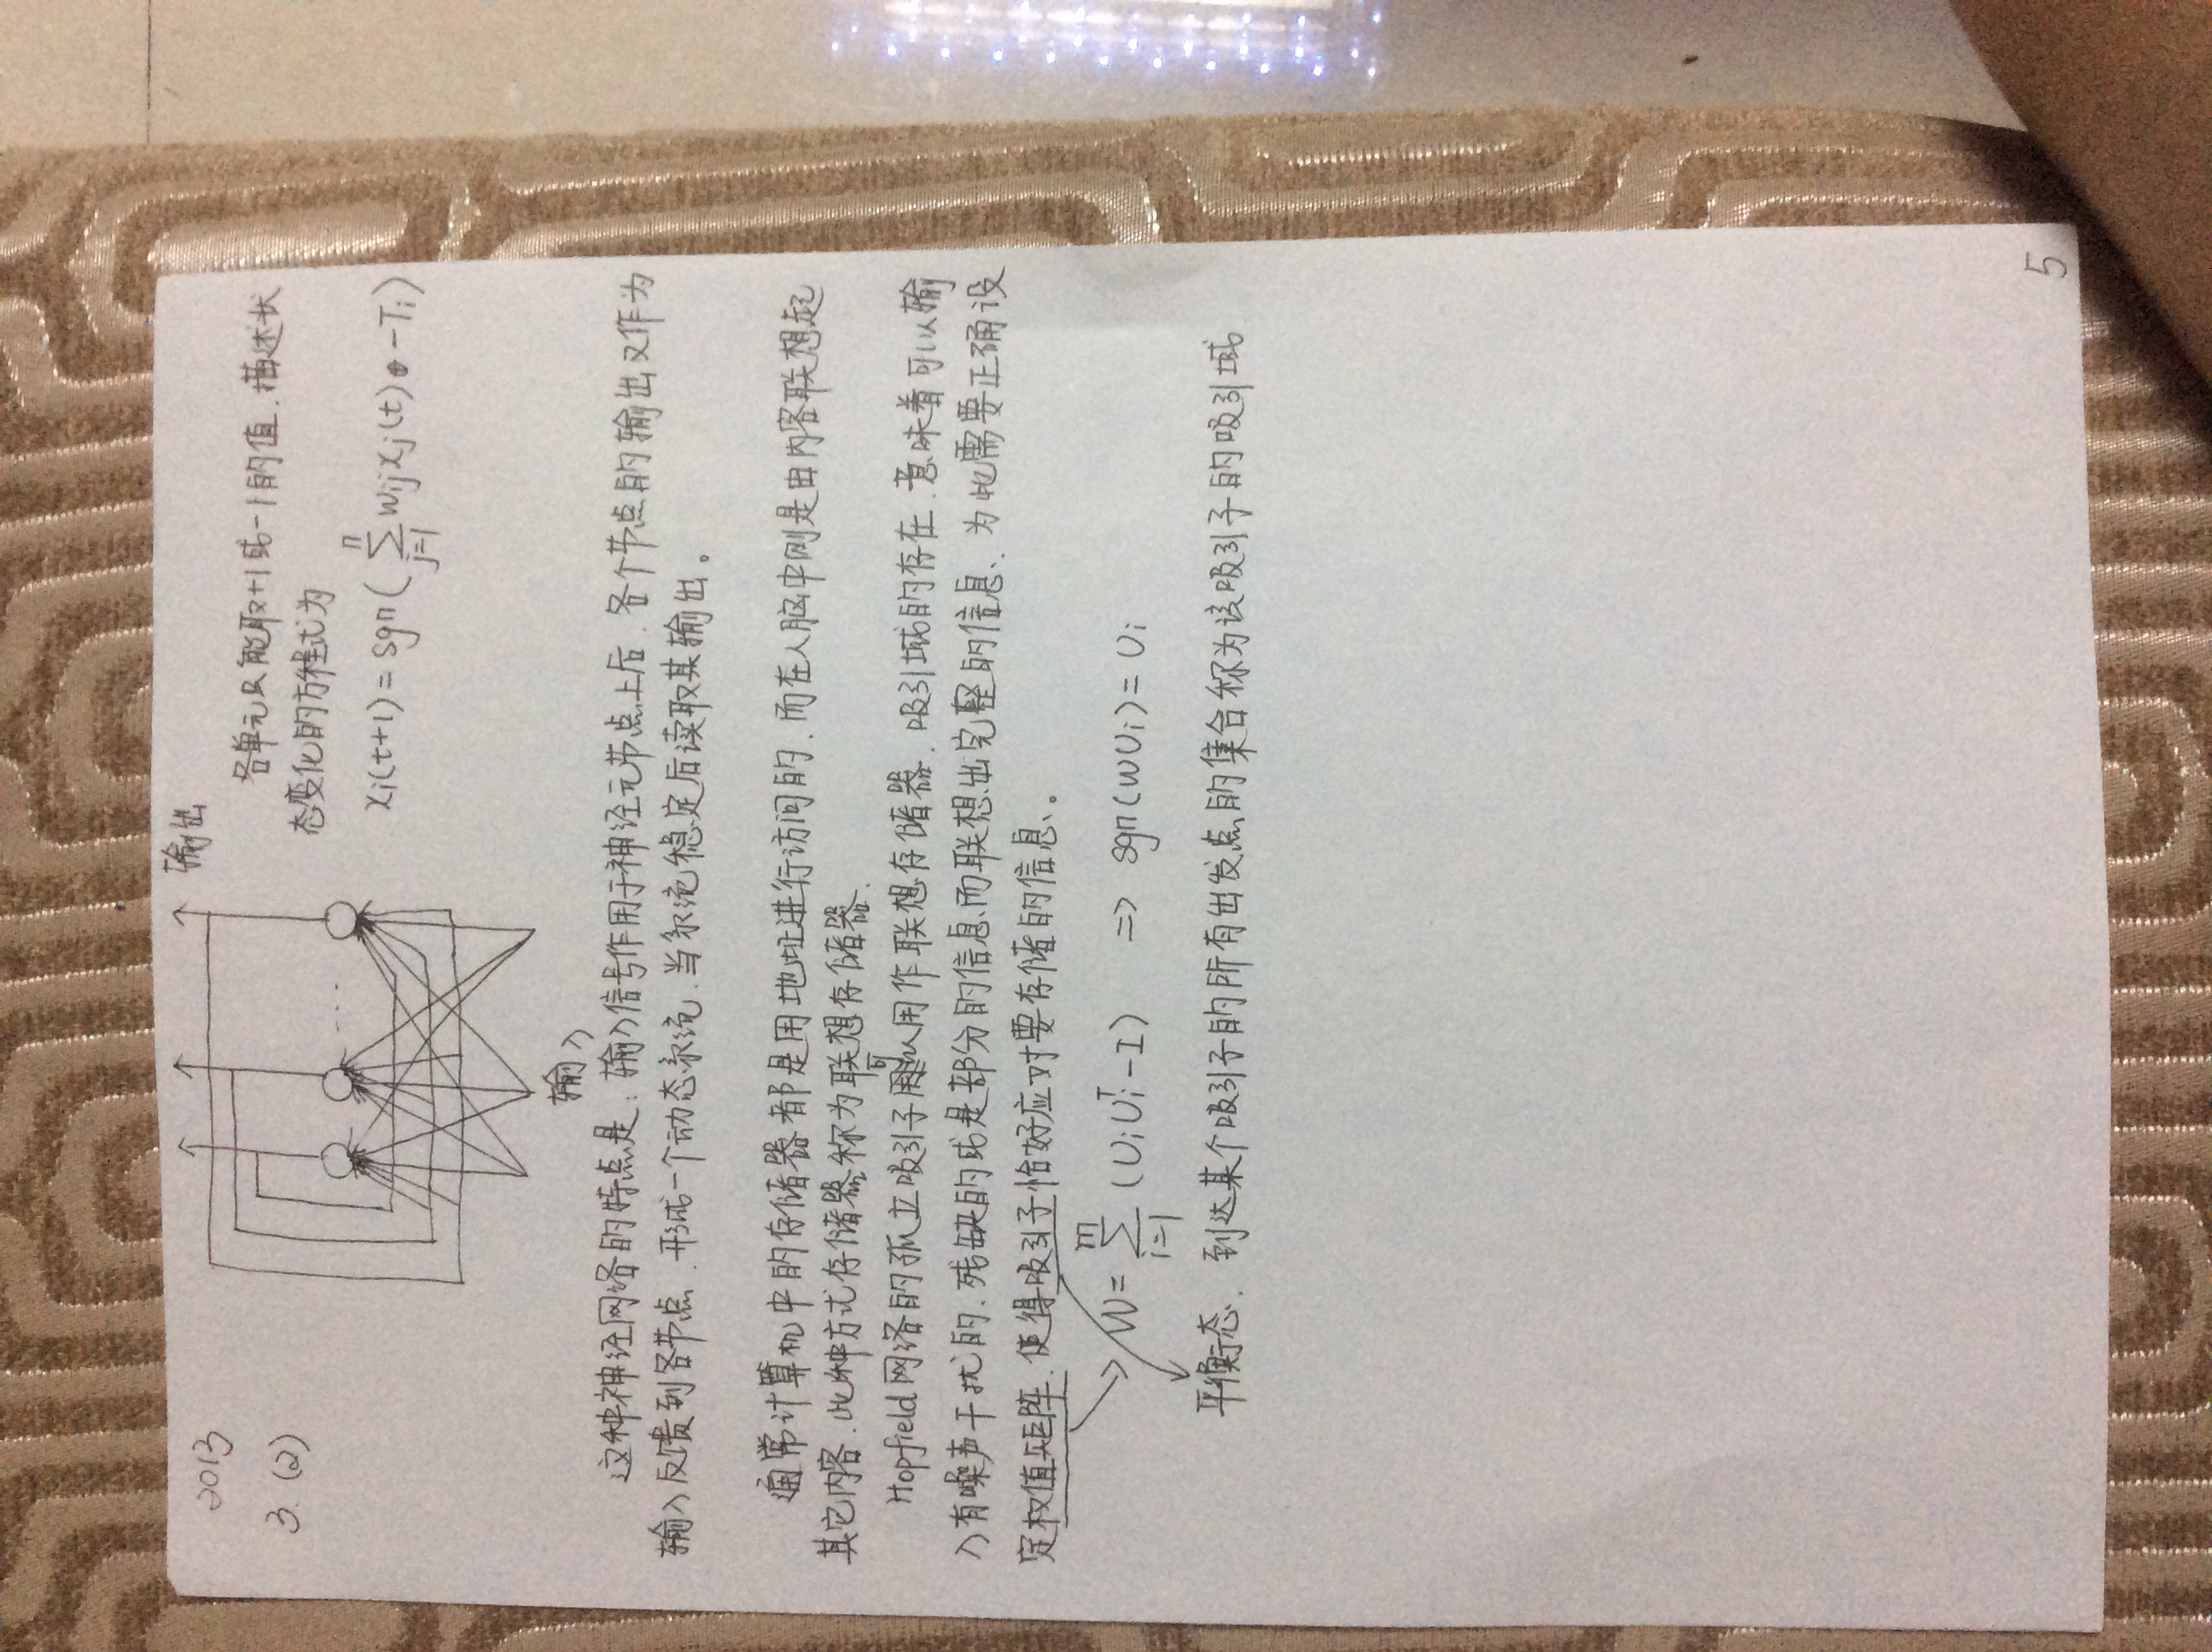 2013
3. (2)
输出
各单元只能取+1或-1的值.描述状
态变化的方程式为
xi(t+1)=sgn(∑ⁿⱼ₌₁ wij xj(t) -Ti)
输入
这种神经网络的特点是:输入信号作用于神经元节点上后.各个节点的输出又作为
输入反馈到各节点.形成一个动态系统.当系统稳定后读取其输出。
通常计算机中的存储器都是用地址进行访问的.而在人脑中则是由内容联想起
其它内容.此种方式存储器称为联想存储器.
Hopfield网络的孤立吸引子可以用作联想存储器.吸引域的存在.意味着可以输
入有噪声干扰的.残缺的或是部分的信息而联想出完整的信息、为此需要正确设
定权值矩阵.使得吸引子恰好应对要存储的信息、。
W=∑ᵐᵢ₌₁(UiUiᵀ-I) => sgn(WUi)=Ui
平衡态.到达某个吸引子的所有出发点的集合称为该吸引子的吸引域
5